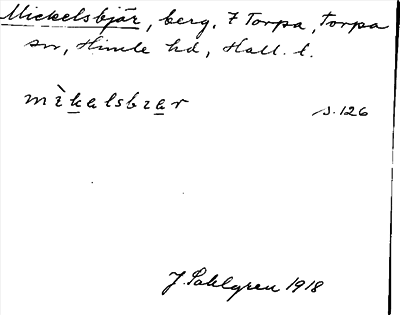 Mickelsbjär, berg, 7 Torpa, Torpa
sn, Himle hd, Hall. l.
mìkalsbɪar s. 126
J. Sahlgren 1918